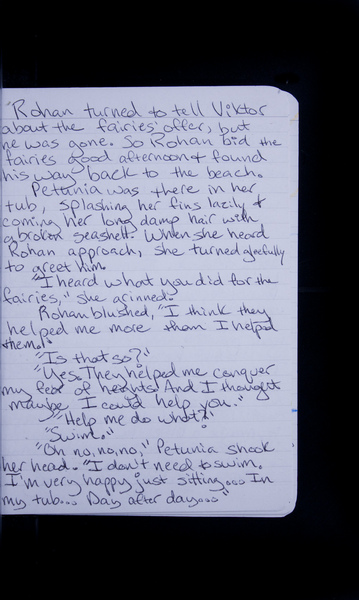 "Rohan turned to tell Viktor
about the fairies' offer, but
he was gone. So Rohan bid the
fairies good afternoon & found
his way back to the beach.
Petunia was there in her
tub, splashing her fins lazily &
coming her long damp hair with
a broken seashell. When she heard
Rohan approach, she turned gleefully
to greet him.
"I heard what you did for the
fairies," she grinned.
Rohan blushed, "I think they
helped me more than I helped
them."
"Is that so?"
"Yes. They helped me conquer
my fear of heights! And I thought
maybe I could help you."
"Help me do what?"
"Swim."
"Oh no, no, no," Petunia shook
her head. "I don't need to swim.
I'm very happy just sitting... In
my tub... Day after day..."